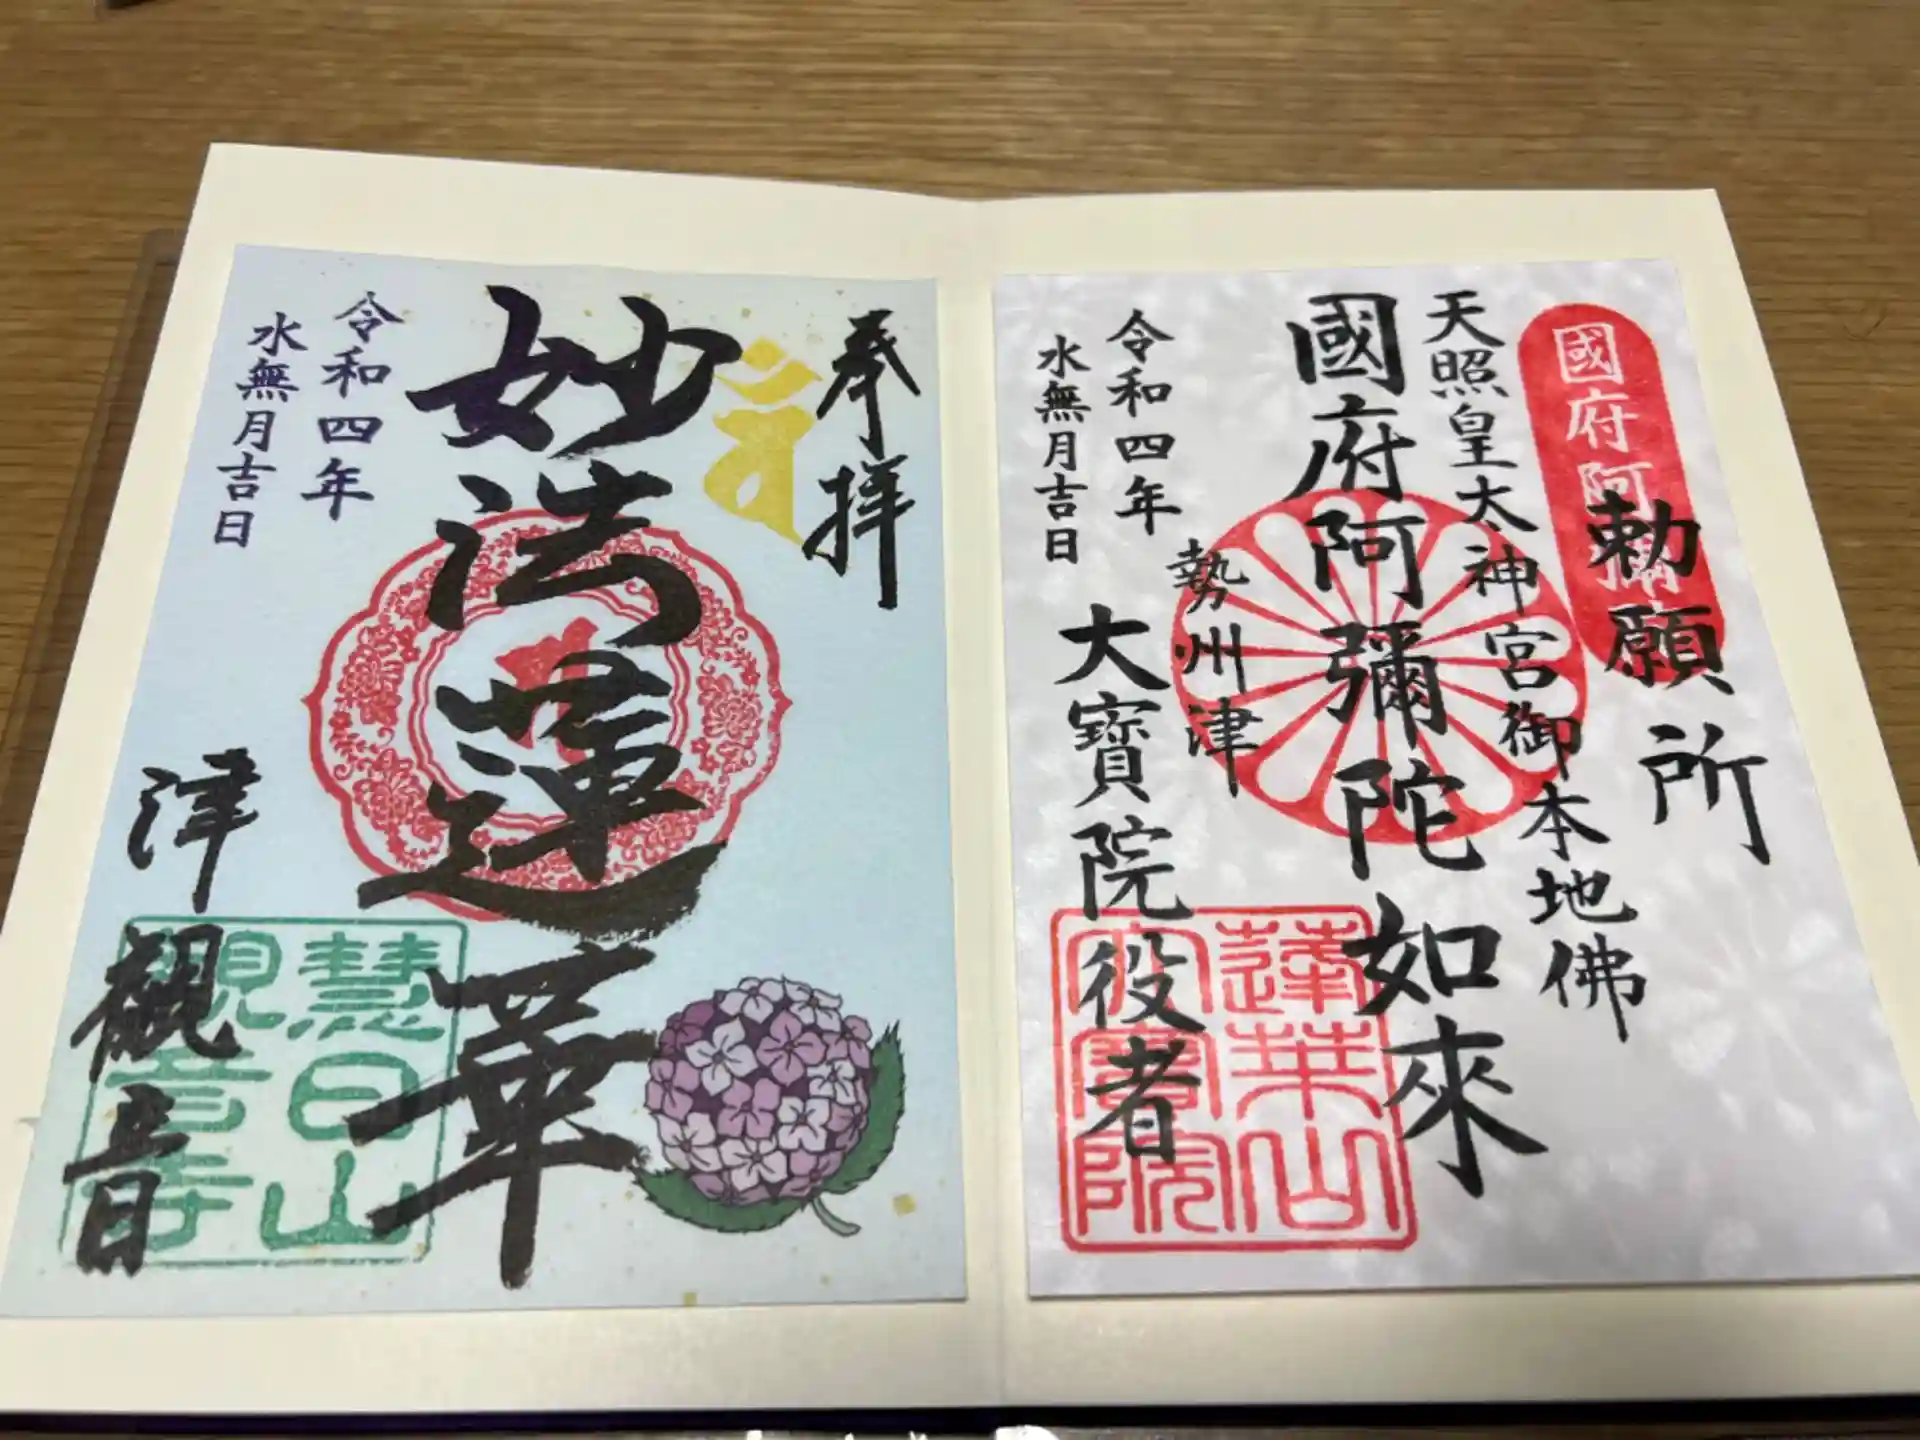 國府阿彌
勅願所
天照皇太神宮御本地佛
國府阿彌陀如來
勢州津
大寶院役者
令和四年
水無月吉日
蓮華山
大寶院
奉拝
妙法蓮華
令和四年
水無月吉日
津観音
慧日山
観音寺